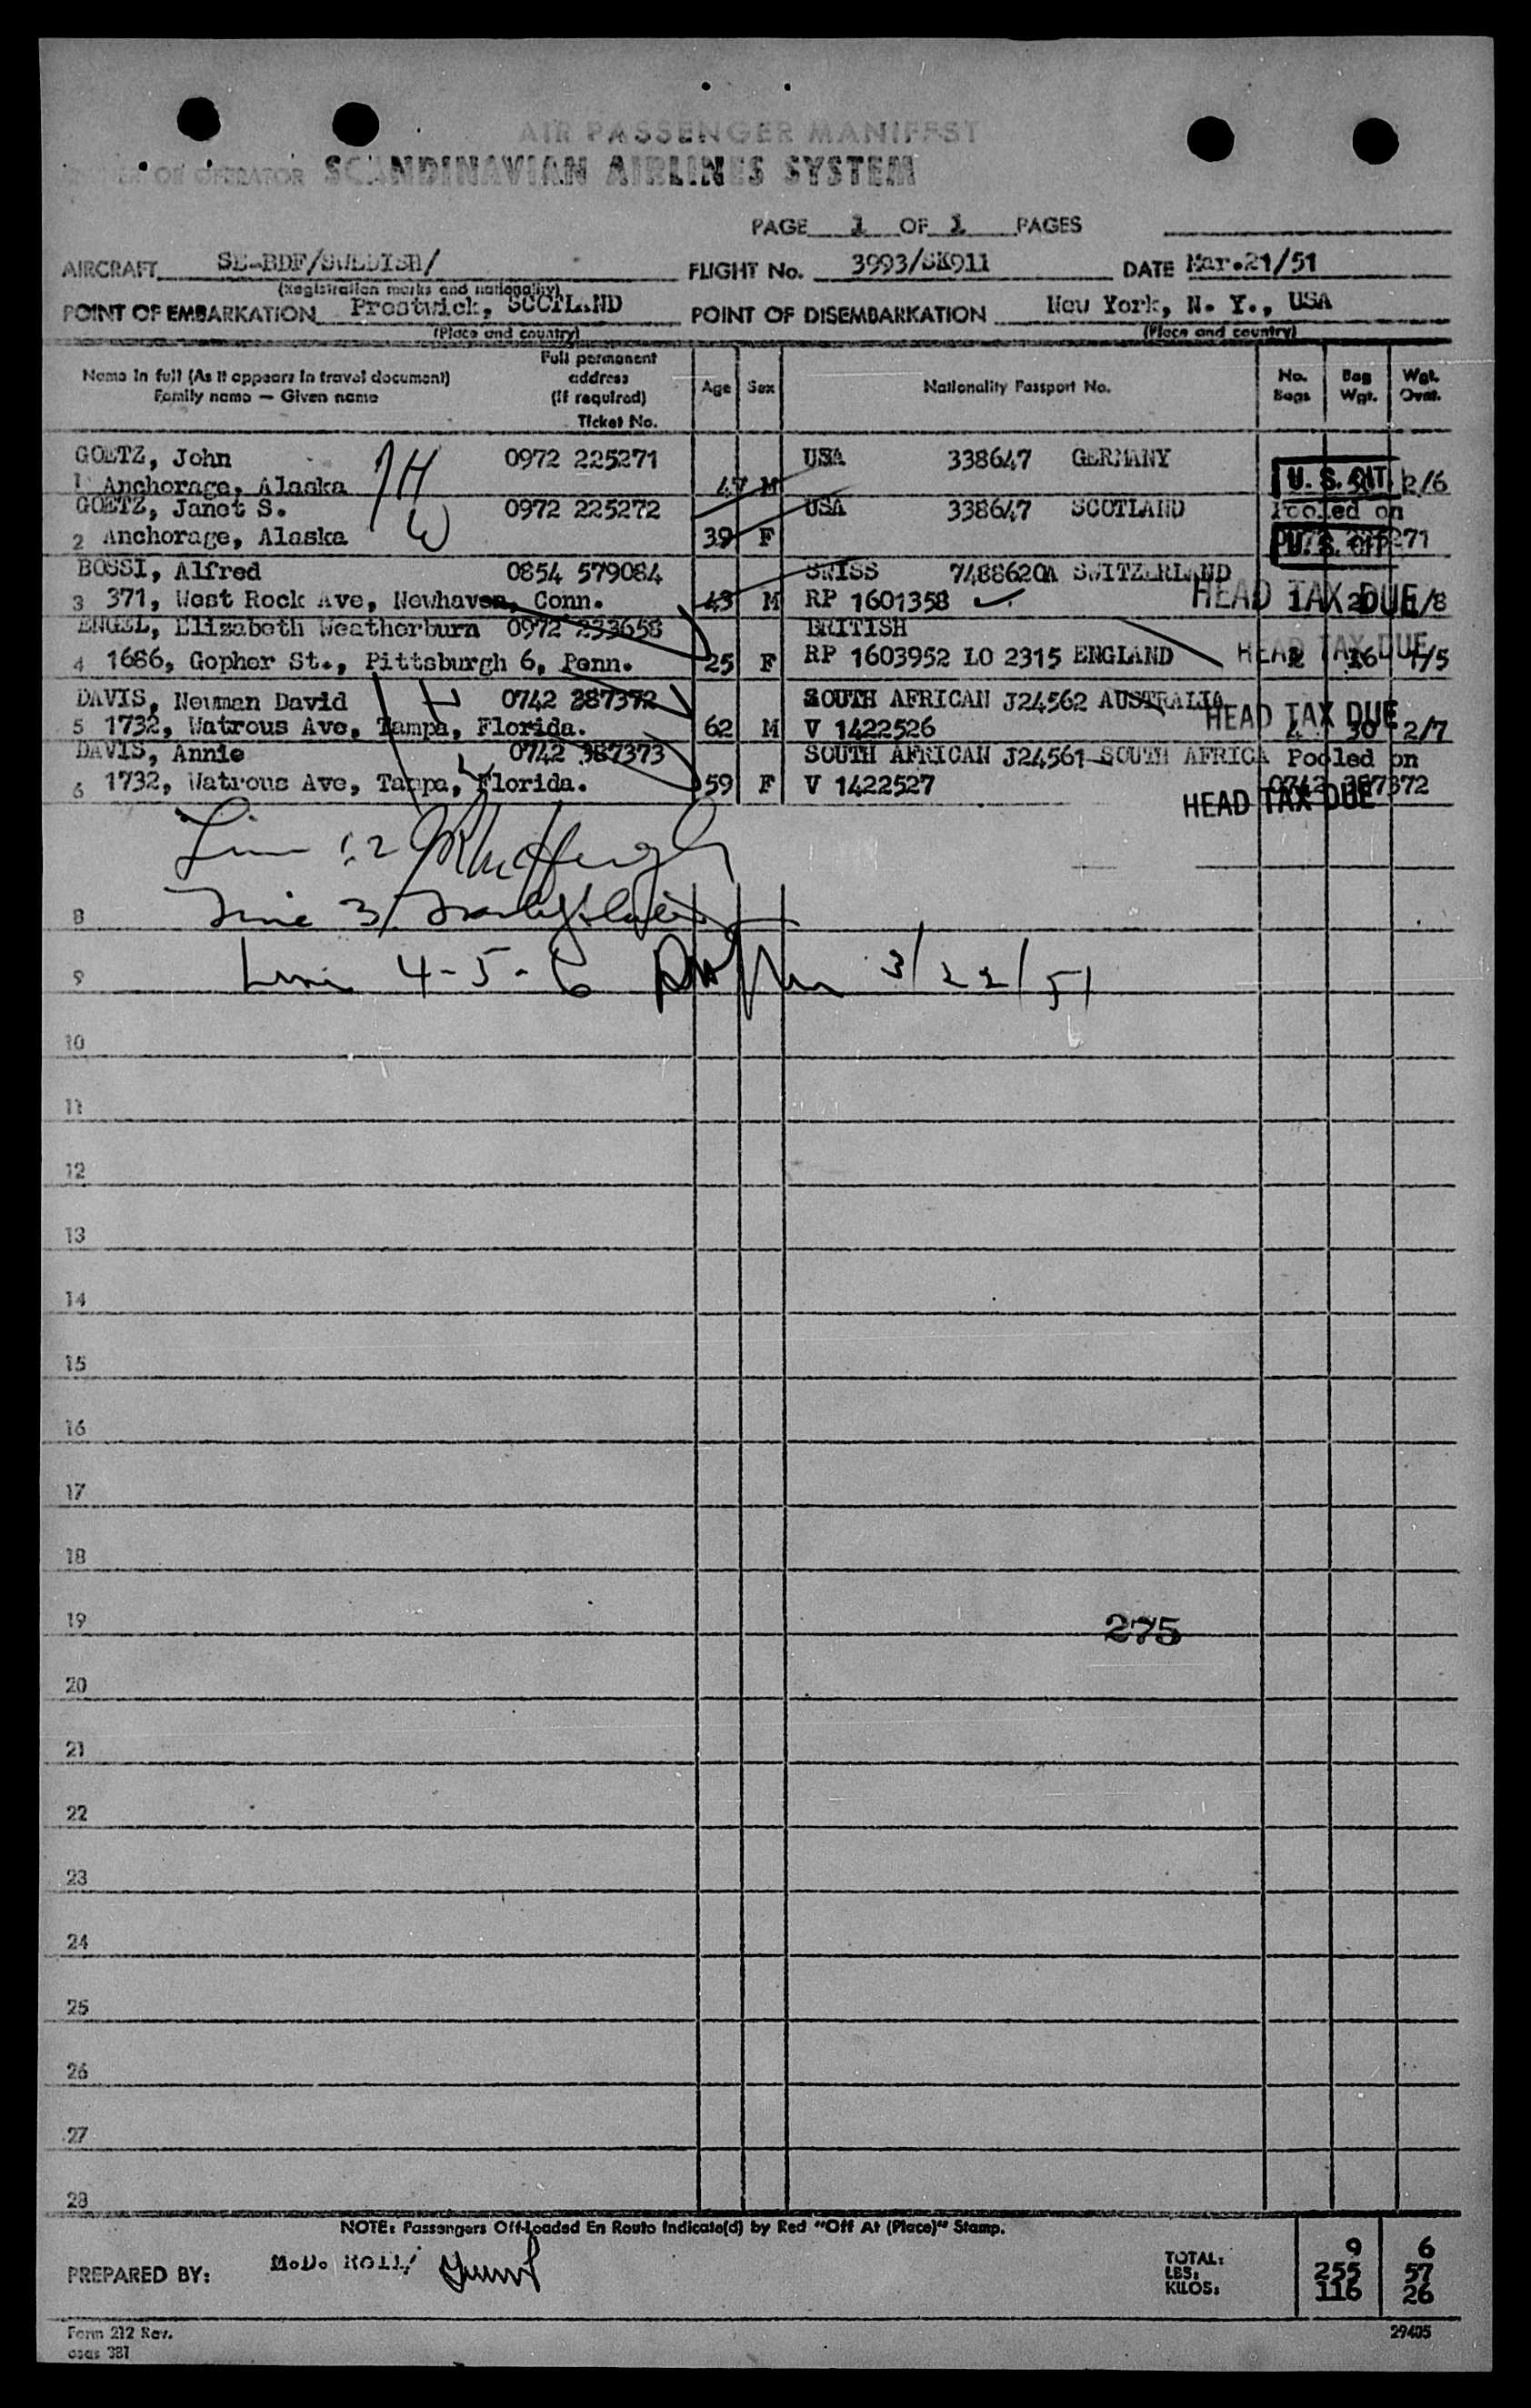 AIR PASSENGER MANIFEST
OWNER OR OPERATOR SCANDINAVIAN AIRLINES SYSTEM
PAGE 1 OF 1 PAGES
AIRCRAFT SE-BDF/SWEDISH/ FLIGHT No. 3993/SK911 DATE Mar.21/51
(Registration marks and nationality)
POINT OF EMBARKATION Prestwick, SCOTLAND POINT OF DISEMBARKATION New York, N. Y., USA
(Place and country) (Place and country)
Name in full (As it appears in travel document) Family name — Given name
Full permanent address (if required) Ticket No.
Age Sex Nationality Passport No. No. Bags Bag Wgt. Wgt. Ovct.
GOETZ, John 0972 225271 USA 338647 GERMANY
1 Anchorage, Alaska 47 M U. S. CIT. 2/6
H
GOETZ, Janet S. 0972 225272 USA 338647 SCOTLAND Pooled on
2 Anchorage, Alaska 39 F U. S. CIT. 271
W
BOSSI, Alfred 0854 579084 SWISS 7488620A SWITZERLAND
3 371, West Rock Ave, Newhaven, Conn. 43 M RP 1601358 HEAD TAX DUE 1 20 1/8
ENGEL, Elizabeth Weatherburn 0972 233658 BRITISH
4 1686, Gopher St., Pittsburgh 6, Penn. 25 F RP 1603952 LO 2315 ENGLAND HEAD TAX DUE 2 16 1/5
DAVIS, Newman David 0742 387372 SOUTH AFRICAN J24562 AUSTRALIA
5 1732, Watrous Ave, Tampa, Florida. 62 M V 1422526 HEAD TAX DUE 4 30 2/7
DAVIS, Annie 0742 387373 SOUTH AFRICAN J24561 SOUTH AFRICA Pooled on
6 1732, Watrous Ave, Tampa, Florida. 59 F V 1422527 0742 387372
HEAD TAX DUE
Line 1.2
8 Line 3
9 Line 4-5-6 3/22/51
10
11
12
13
14
15
16
17
18
19 275
20
21
22
23
24
25
26
27
28
NOTE: Passengers Off-Loaded En Route Indicate(d) by Red "Off At (Place)" Stamp.
PREPARED BY: M.D.
TOTAL: 9 6
LBS: 255 57
KILOS: 116 26
Form 212 Rev. 29405
osas 381